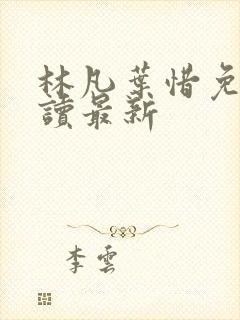 林凡葉惜免
讀最新
李雲